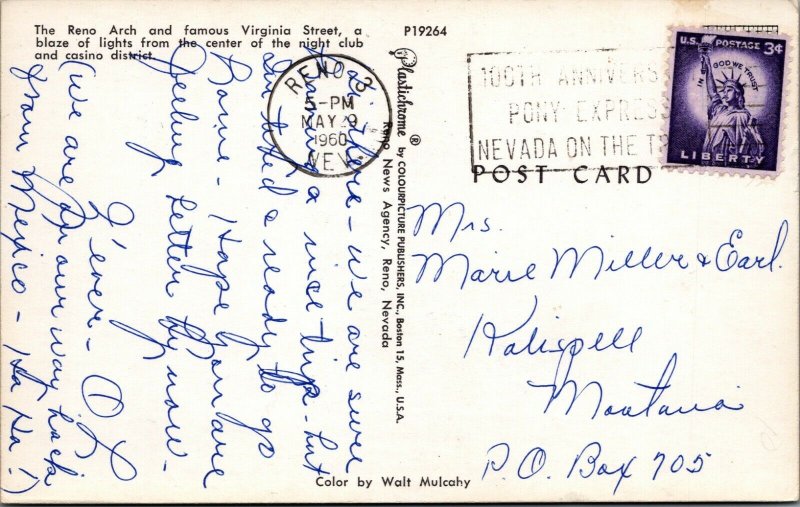 The Reno Arch and famous Virginia Street, a
blaze of lights from the center of the night club
and casino district.
P19264
Hi there - we are sure
having a nice trip - but
am tired & ready to go
home - Hope you are
feeling better by now -
L'ever -
(We are on our way back
from Mexico - Ha Ha!)
RENO 3
5-PM
MAY 9
1960
NEV.
Plastichrome ® by COLOURPICTURE PUBLISHERS, INC., Boston 15, Mass., U.S.A.
Reno News Agency, Reno, Nevada
100TH ANNIVERS
PONY EXPRESS
NEVADA ON THE TR
U.S. POSTAGE 3¢
IN GOD WE TRUST
LIBERTY
POST CARD
Mrs.
Marie Miller & Earl.
Kalispell
Montana
P.O. Box 705
Color by Walt Mulcahy